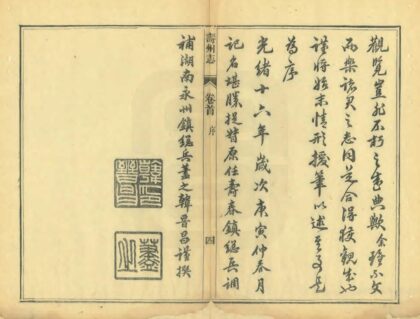 觀覽豈非不朽之盛典歟余雖不文
而樂諸君之志同道合得接觀成也
謹將始末情形援筆以述至是
為序
光緒十六年歲次庚寅仲春月
記名堪勝提督原任壽春鎮總兵調
補湖南永州鎮總兵蓋之韓晉昌謹撰
壽州志
卷首
序
四
韓晉昌印